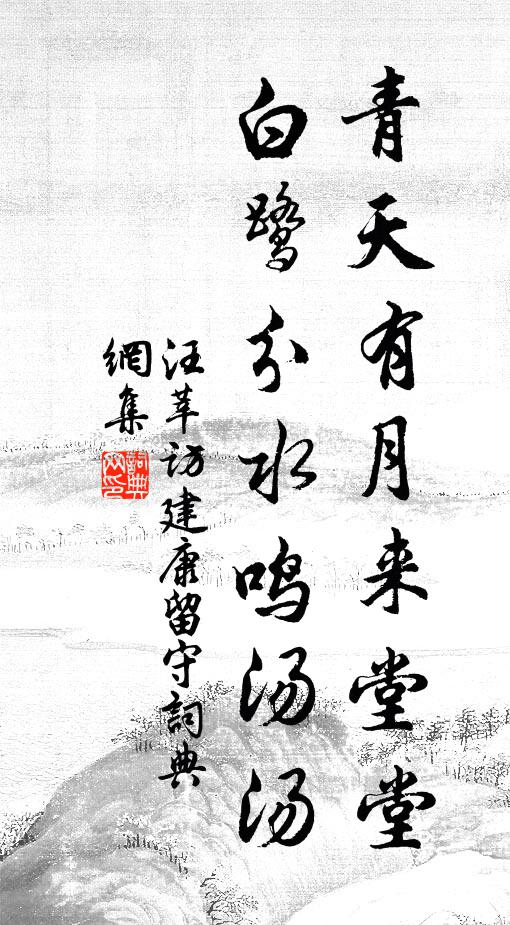 青天有月来堂堂
白鹭分水鸣汤汤
汪莘访建康留守詞典
網集
詞典網印